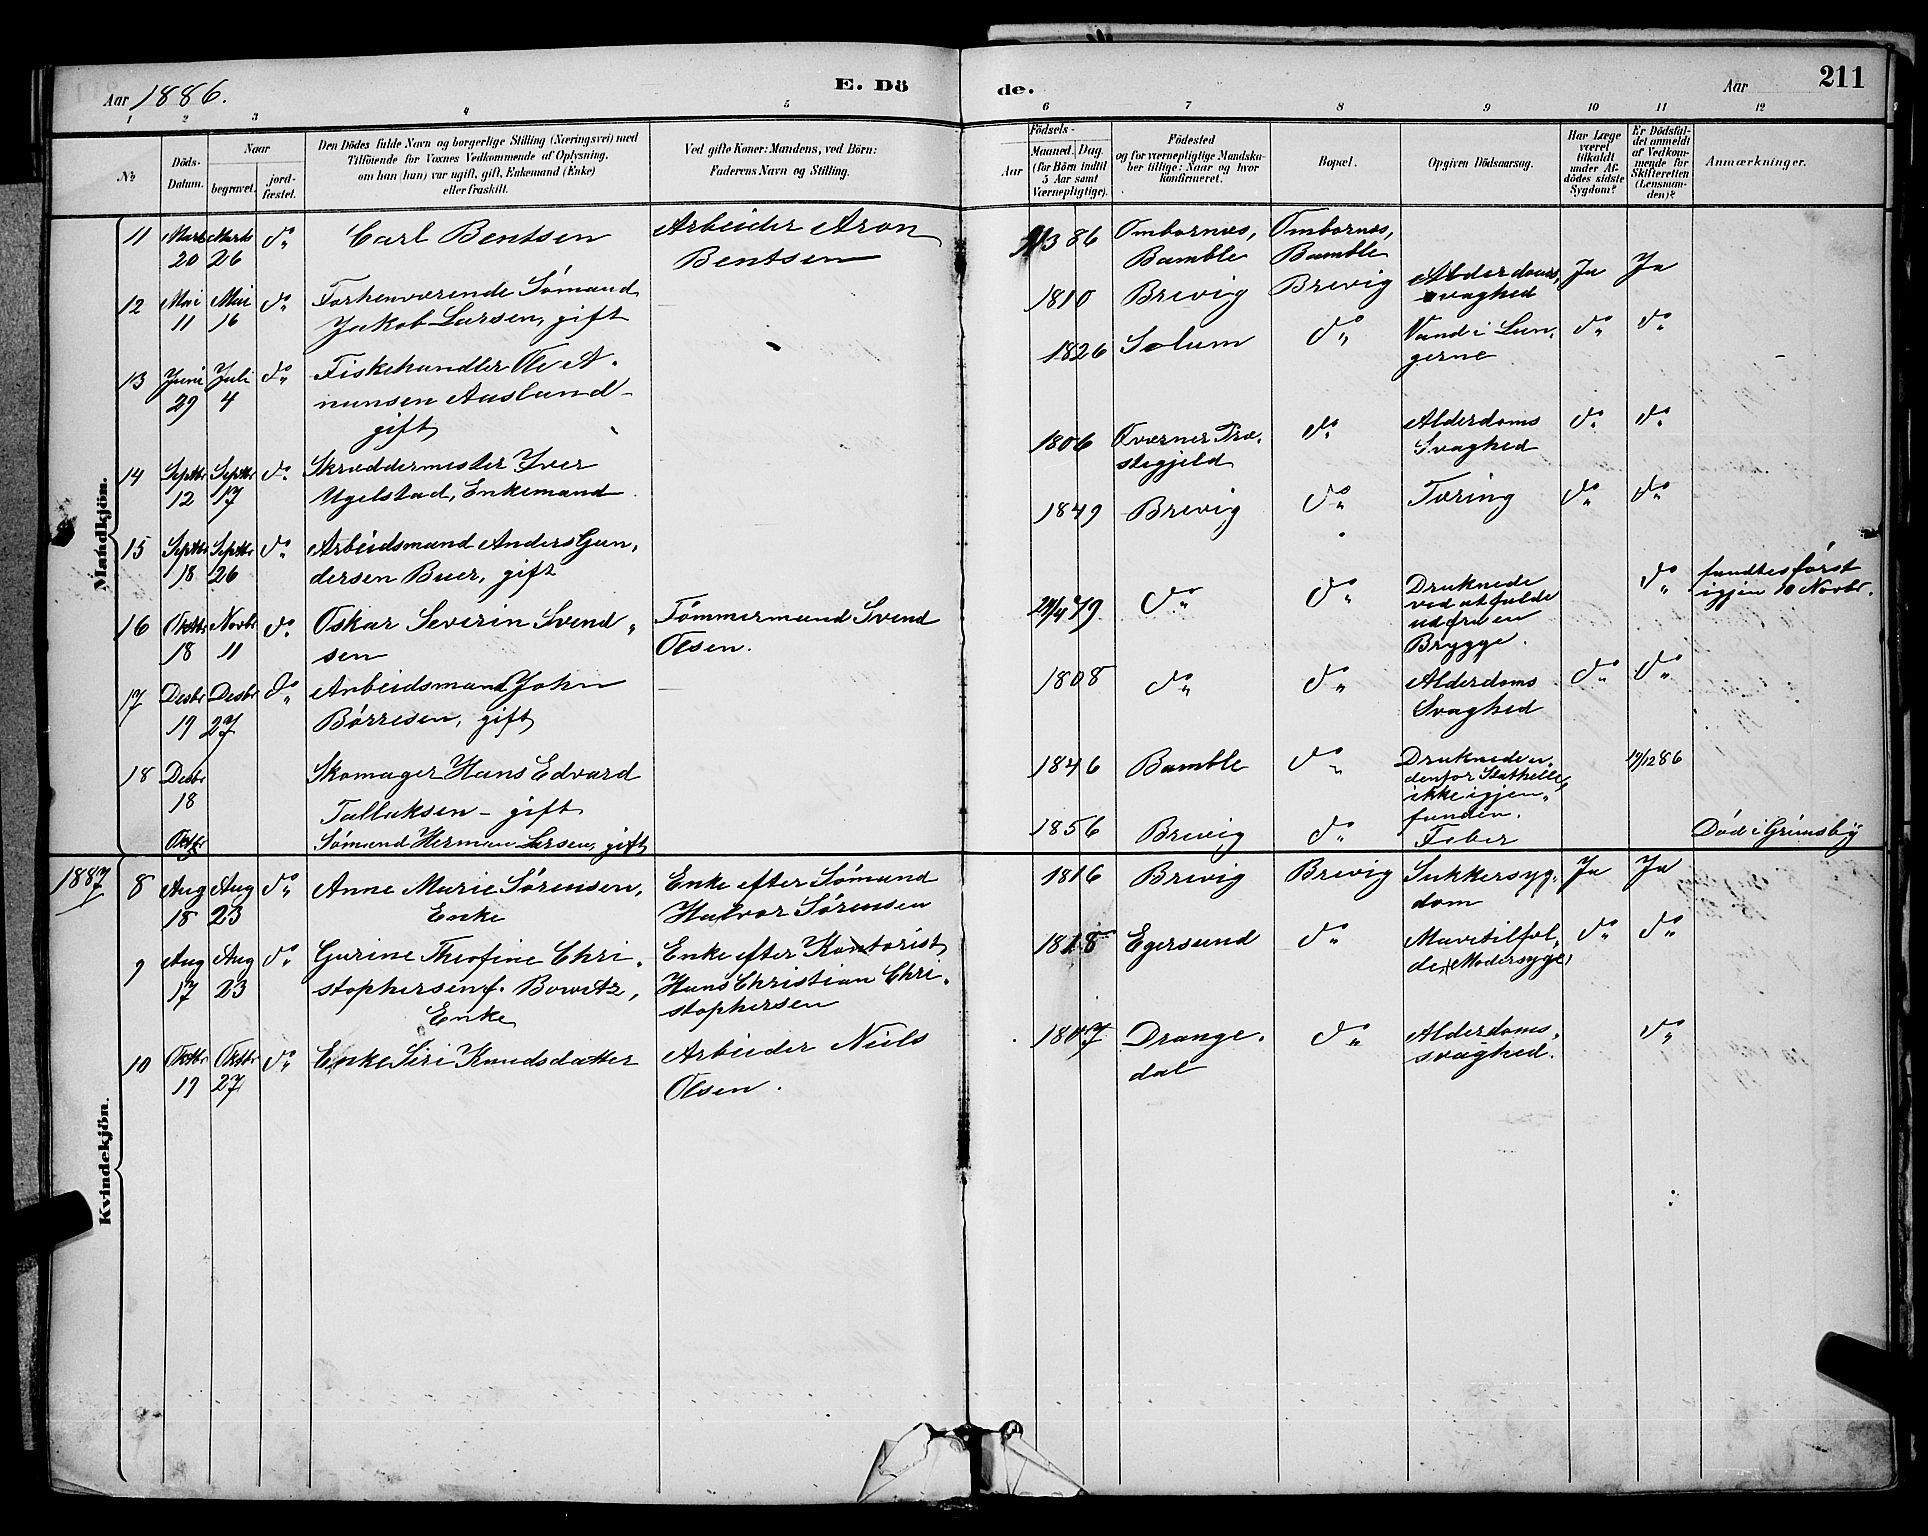 Aar 1886.
E. Dö
de.
Aar
211
1 2 3 4 5 6 7 8 9 10 11 12
№
Döds-
Datum.
Naar
begravet.
jord-
fæstet.
Den Dödes fulde Navn og borgerlige Stilling (Næringsvei) med
Tilföiende for Voxnes Vedkommende af Oplysning,
om han (hun) var ugift, gift, Enkemand (Enke)
eller fraskilt.
Ved gifte Koner: Mandens, ved Börn:
Faderens Navn og Stilling.
Födsels-
Aar
Maaned. Dag.
(for Börn indtil
5 Aar samt
Værnepligtige).
Födested
og for værnepligtige Mandska-
ber tillige: Naar og hvor
Konfirmeret.
Bopæl.
Opgiven Dödsaarsag.
Har Læge
været
tilkaldt
under Af-
dödes sidste
Sygdom?
Er Dödsfal-
det anmeldt
af Vedkom-
mende for
Skifteretten
(Lensman-
den)?
Anmærkninger.
Mandkjön.
11 Marts 20 Marts 26 do Carl Bentsen
Arbeider Aron
Bentsen
/3 86 Ombornæs,
Bamble
Ombornæs,
Bamble
12 Mai 11 Mai 16 do Forhenværende Sømand
Jakob Larsen, gift
1810 Brevig Brevig Alderdoms,
svaghed
Ja Ja
13 Juni 29 Juli 4 do Fiskehandler Ole A.
nunsen Aasland -
gift
1826 Solum do Vand i Lun,
gerne
do do
14 Septbr 12 Septbr 17 do Skræddermester Iver
Ugelstad, Enkemand.
1806 Tværner Præ.
stegjeld
do Alderdoms
Svaghed
do do
15 Septbr 18 Septbr 26 do Arbeidsmand Anders Gun,
dersen Buer, gift
1849 Brevig do Tæring do do
16 Oktbr 18 Novbr 11 do Oskar Severin Svend,
sen
Tømmermand Svend
Olsen.
29/4 79 do do Druknede
ved at falde
ud fra en
Brygge.
do fandtes først
igjen 10 Novbr.
17 Desbr 19 Desbr 27 do Arbeidsmand John
Børresen, gift
1808 do do Alderdoms
Svaghed
do do
18 Desbr 18 Skomager Hans Edvard
Tallaksen - gift
1846 Bamble do Druknede u,
denfor Stathelle,
ikke igjen,
funden.
19/12 86
Oktbr Sømand Herman Larsen, gift
1856 Brevig do Feber Død i Grimsby
1887
Kvindekjön.
8 Aug 18 Aug 23 do Anne Marie Sørensen,
Enke
Enke efter Sømand
Halvor Sørensen
1816 Brevig Brevig Sukkersyg,
dom
Ja Ja
9 Aug 17 Aug 23 do Gurine Theofine Chri,
stophersen f. Bowitz,
Enke
Enke efter Kontorist
Hans Christian Chri,
stophersen
1818 Egersund do Mavetilfæl,
de (Modersyge)
do do
10 Oktbr 19 Oktbr 27 do Enke Siri Knudsdatter
Arbeider Niels
Olsen.
1807 Drange,
dal
do Alderdoms,
svaghed.
do